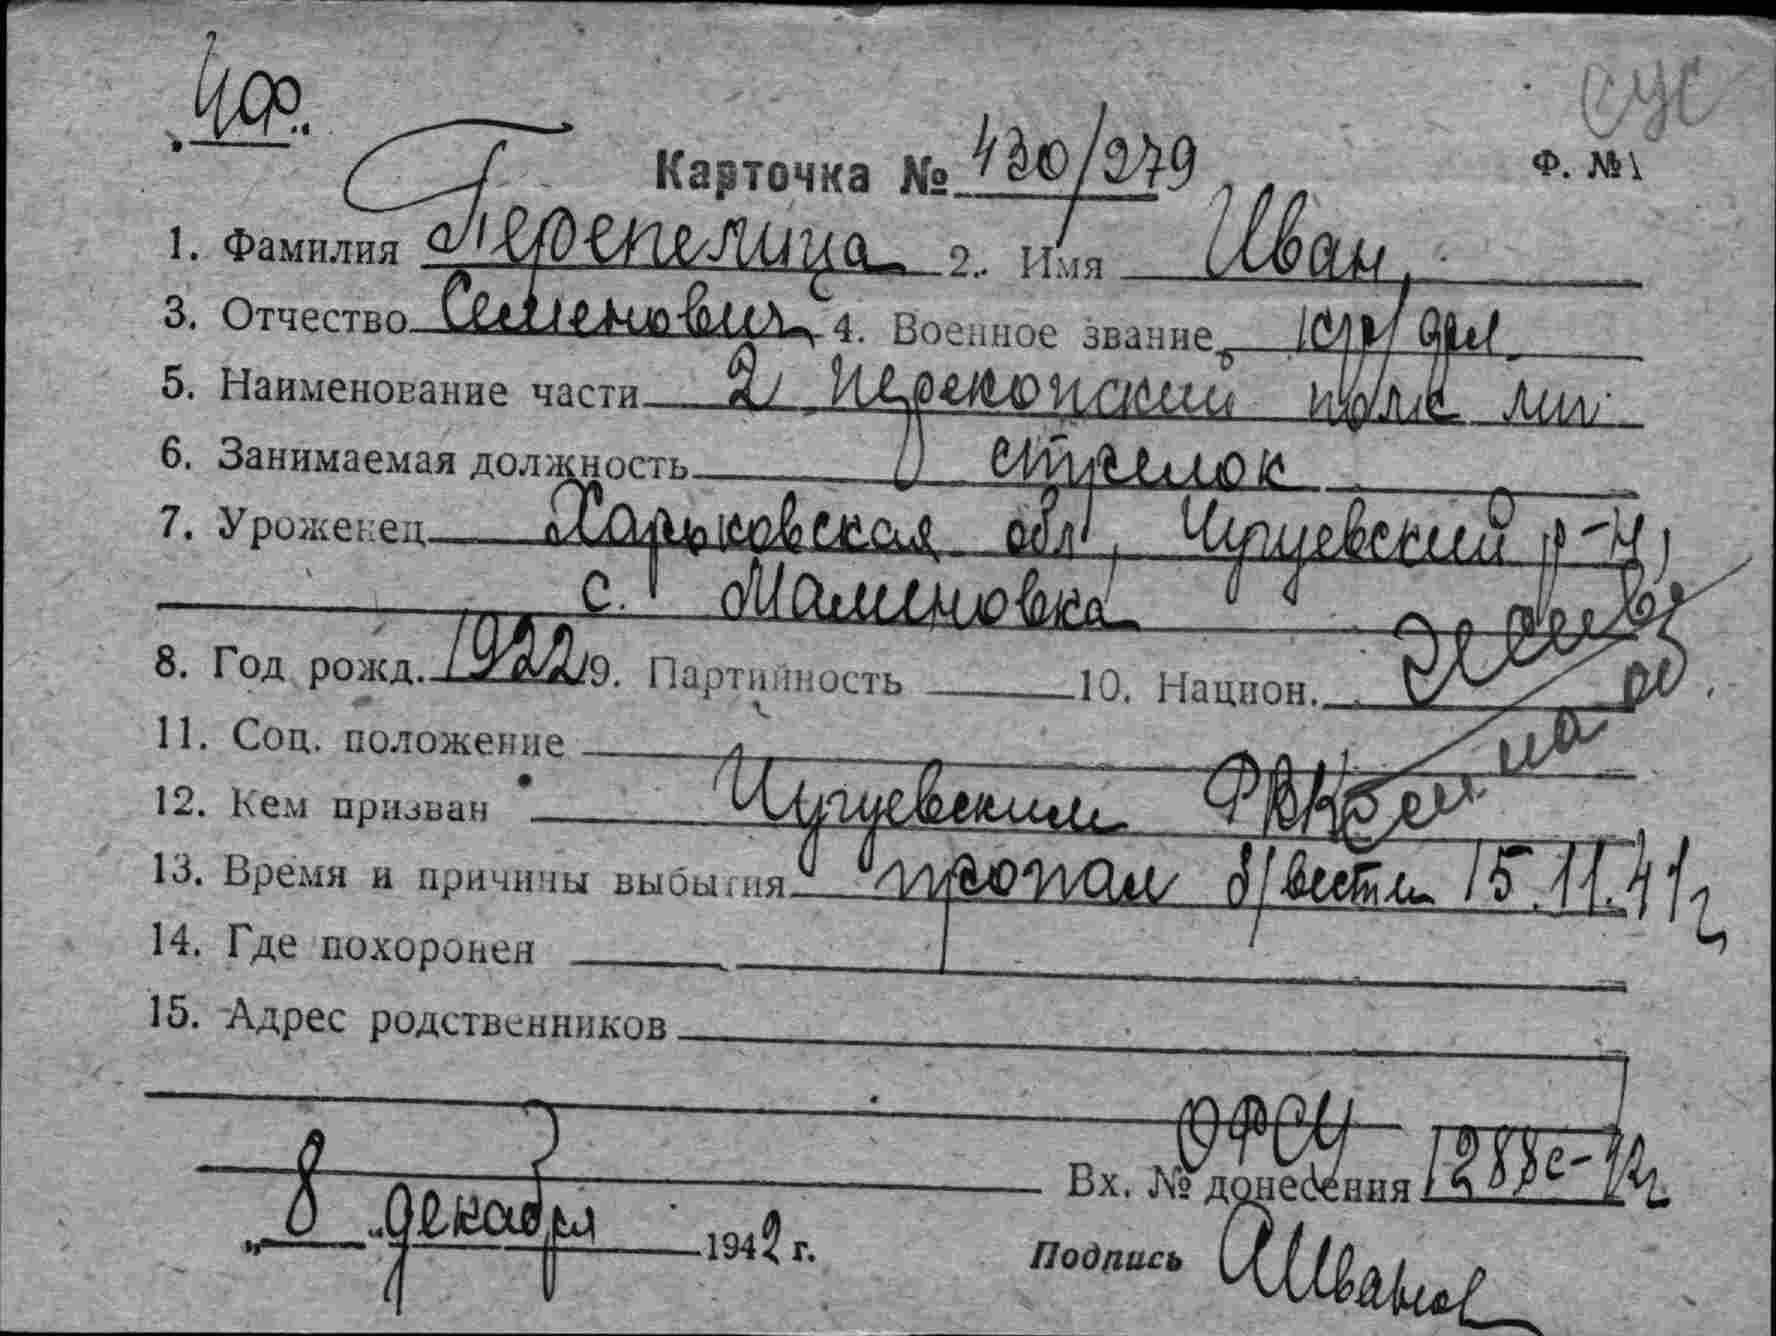 ЧФ.
сус
Карточка № 430/279
Ф. №1
1. Фамилия Перепелица 2. Имя Иван,
3. Отчество Семенович 4. Военное звание кр/фл
5. Наименование части 2 Перекопский полк мп
6. Занимаемая должность стрелок
7. Уроженец Харьковская обл, Чугуевский р-н,
с. Маменовка
8. Год рожд. 1922 9. Партийность 10. Национ.
11. Соц. положение
12. Кем призван Чугуевским РВК
13. Время и причины выбытия пропал б/вести 15.11.41г
14. Где похоронен
15. Адрес родственников
ОФСЧ
Вх. № донесения 1288с-42г
„8 декабря 1942 г.
Подпись АИванов